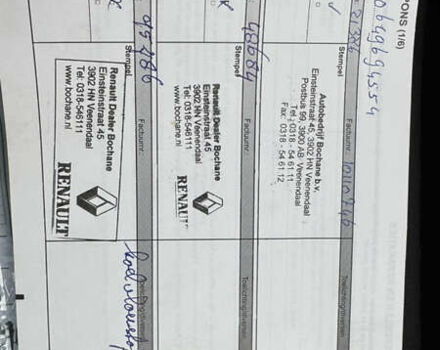 PONS (1/6)
0649694554
21386
Factuurnr. 10110746
Toelichting/diversen
Stempel
Autobedrijf Bochane b.v.
Einsteinstraat 45, 3902 HN Veenendaal
Postbus 99, 3900 AB Veenendaal
Tel.: 0318 - 54 61 11
Fax: 0318 - 54 61 12
48684
Factuurnr.
Toelichting/diversen
Stempel
Renault Dealer Bochane
Einsteinstraat 45
3902 HN Veenendaal
Tel. 0318-546111
www.bochane.nl
RENAULT
95286
Factuurnr.
Toelichting/diversen
Stempel
Renault Dealer Bochane
Einsteinstraat 45
3902 HN Veenendaal
Tel. 0318-546111
www.bochane.nl
RENAULT